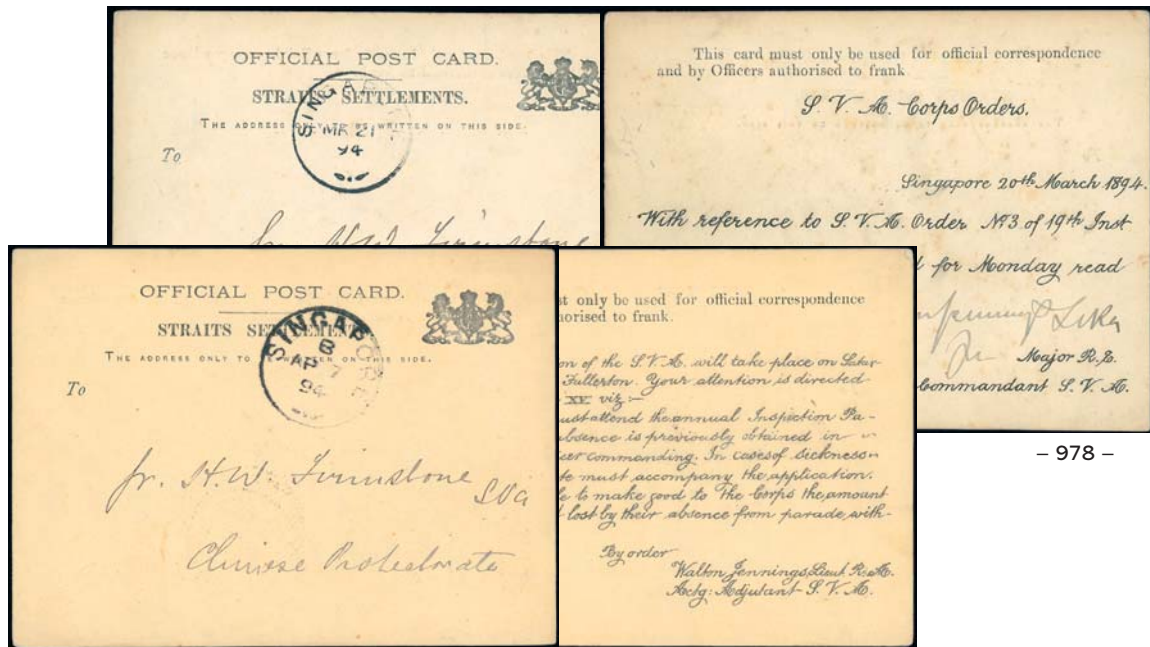 OFFICIAL POST CARD.
STRAITS SETTLEMENTS.
THE ADDRESS ONLY TO BE WRITTEN ON THIS SIDE.
SINGAPORE
MR 21
94
To
H.W.
This card must only be used for official correspondence
and by Officers authorised to frank
S. V. A. Corps Orders.
Singapore 20th March 1894.
With reference to S. V. A. Order No 3 of 19th Inst
for Monday read
Major R.E.
Commandant S. V. A.
– 978 –
OFFICIAL POST CARD.
STRAITS SETTLEMENTS.
THE ADDRESS ONLY TO BE WRITTEN ON THIS SIDE.
SINGAPORE
B
AP 7
94
To
H.W.
SVA
Chinese Protectorate
st only be used for official correspondence
horised to frank.
on of the S. V. A. will take place on Satur-
Fullerton. Your attention is directed
XE viz:-
ust attend the annual Inspection Pa-
absence is previously obtained in
cer commanding. In cases of sickness
te must accompany the application.
e to make good to the Corps the amount
lost by their absence from parade, with-
By order
Walton Jennings, Lieut. R. A.
Actg: Adjutant S. V. A.